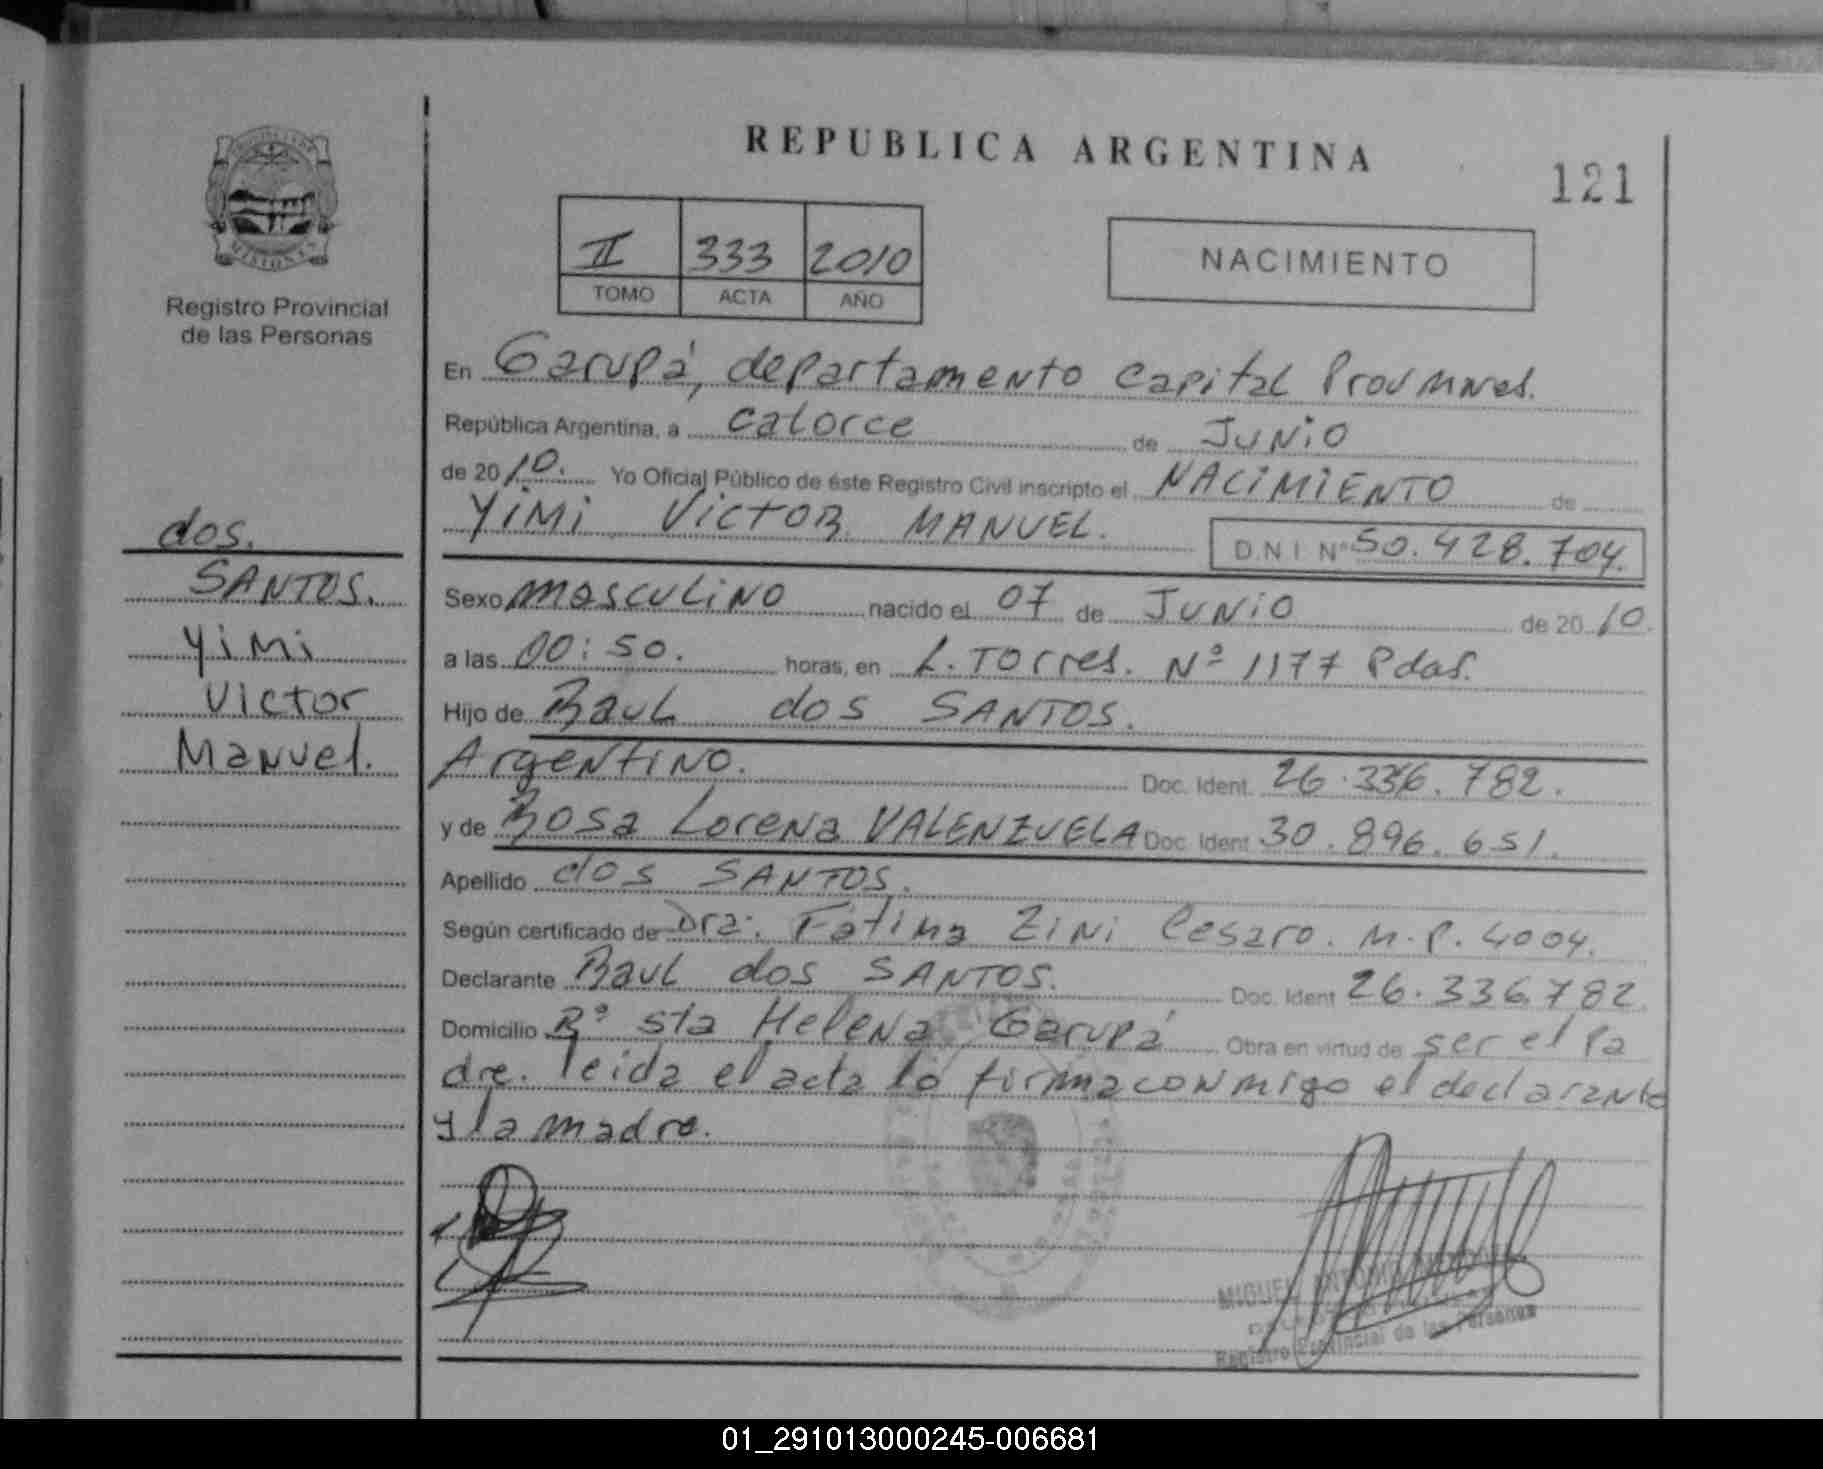 REPUBLICA ARGENTINA
121
II 333 2010
TOMO ACTA AÑO
NACIMIENTO
Registro Provincial
de las Personas
dos.
SANTOS.
Yimi
Victor
Manuel.
En Garupá, departamento Capital Prov Mnes.
República Argentina, a catorce de Junio
de 2010. Yo Oficial Público de éste Registro Civil inscripto el NACIMIENTO de
YiMi Victor MANUEL. D.N.I. Nº 50.428.704.
Sexo masculino nacido el 07 de Junio de 2010.
a las 00:50. horas, en L. Torres. Nº 1177 Pdas.
Hijo de Raul dos SANTOS.
Argentino. Doc. Ident. 26.336.782.
y de Rosa Lorena VALENZUELA Doc. Ident. 30.896.651.
Apellido dos SANTOS.
Según certificado de Dra. Fatima Zini Cesaro. M.P. 4004.
Declarante Raul dos SANTOS. Doc. Ident. 26.336.782
Domicilio Bº sta Helena Garupá Obra en virtud de ser el pa
dre. leida el acta lo firma conmigo el declarante
y la madre.
MIGUEL ANTONIO
Registro Provincial de las Personas
01_291013000245-006681